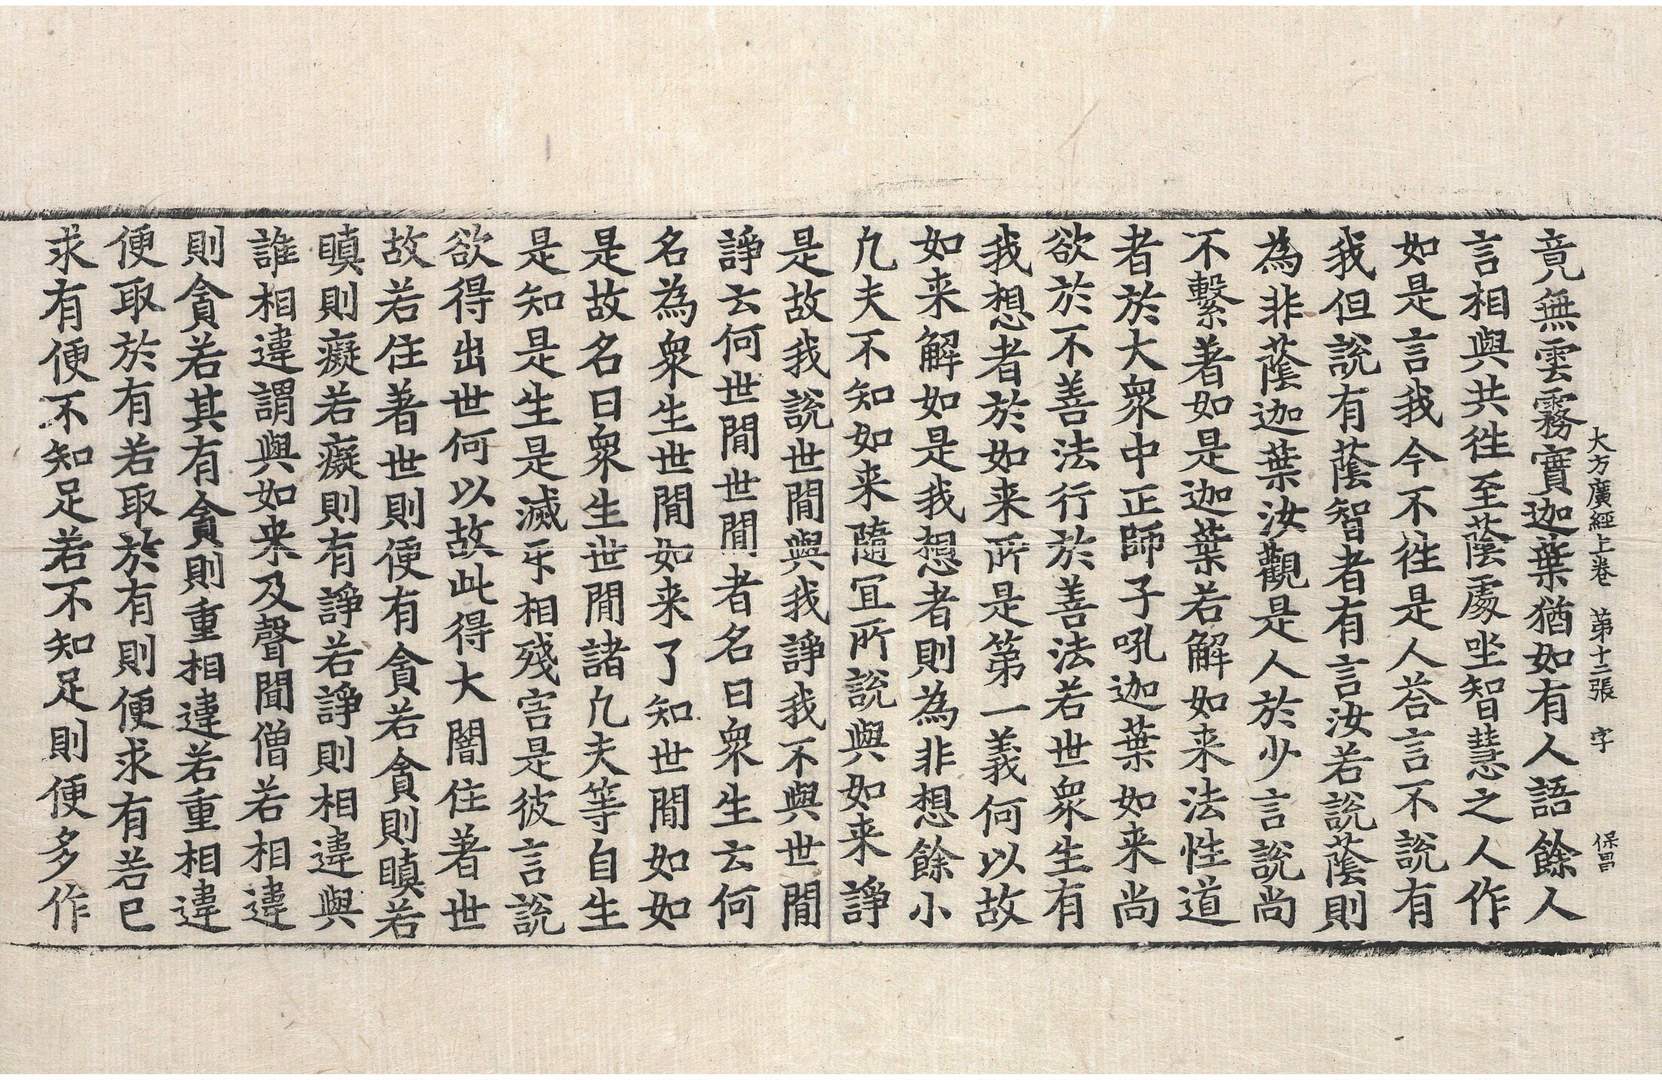 竟無雲霧實迦葉猶如有人語餘人
大方廣經上卷 第十二張 字 保昌
言相與共徃至蔭處坐智慧之人作
如是言我今不徃是人荅言不說有
我但說有蔭智者有言汝若說蔭則
為非蔭迦葉汝觀是人於少言說尚
不繫著如是迦葉若解如来法性道
者於大衆中正師子吼迦葉如来尚
欲於不善法行於善法若世衆生有
我想者於如来所是第一義何以故
如来解如是我想者則為非想餘小
凢夫不知如来隨宜所說與如来諍
是故我說世閒與我諍我不與世閒
諍云何世閒世閒者名曰衆生云何
名為衆生世閒如来了知世閒如如
是故名曰衆生世閒諸凢夫等自生
是知是生是滅乐相殘害是彼言說
欲得出世何以故此得大闇住著世
故若住著世則便有貪若貪則瞋若
瞋則癡若癡則有諍若諍則相違與
誰相違謂與如来及聲聞僧若相違
則貪若其有貪則重相違若重相違
便取於有若取於有則便求有若已
求有便不知足若不知足則便多作